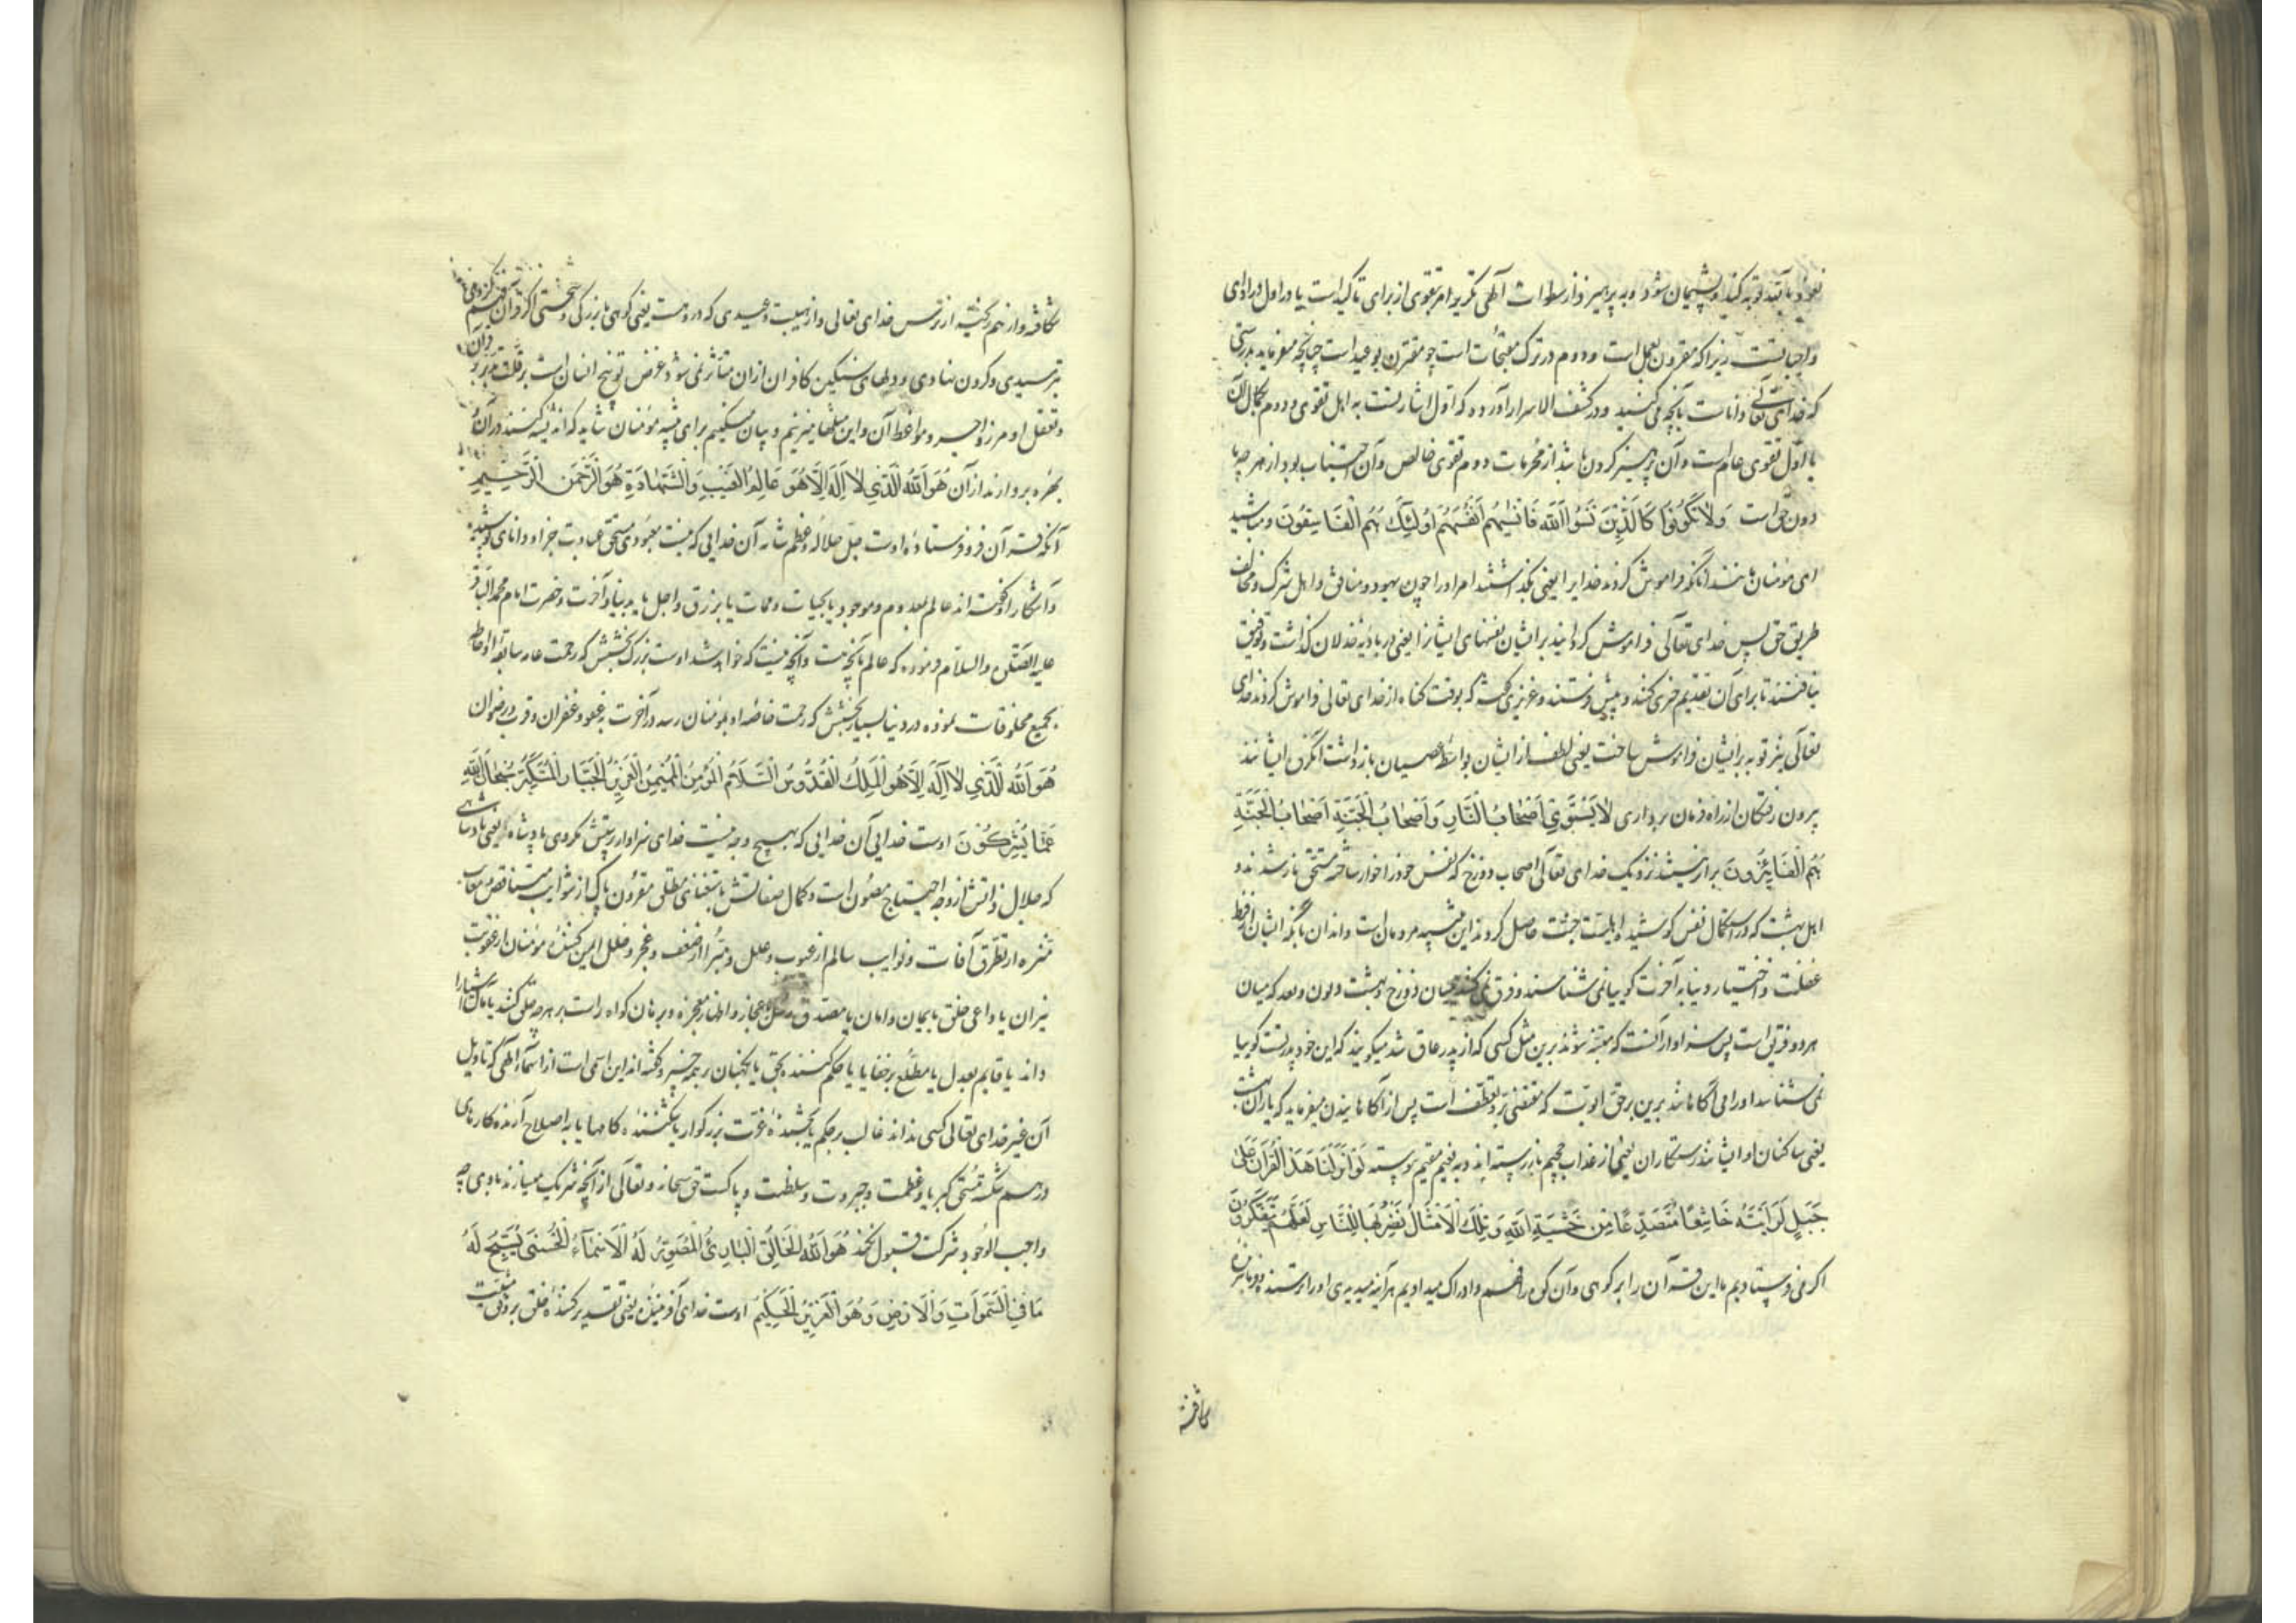 نعوذ باید توبه کنید و پشیمان شوید و به پرهیزید از سطوات الهی تکریر امر بتقوی از برای تاکید است یا در اول در ادای
واجباتست زیرا که مقرون بعمل است و دوم در ترک مقبحات است چو مقترن بوعید است چنانچه میفرماید بدرستی
که خدای تعالی داناست بآنچه می کنید و در کشف الاسرار آورده که اول اشارتست به اهل تقوی و دوم بکمال آن
یا اول تقوی عام است و آن پرهیز کردن باشد از محرمات و دوم تقوی خاص و آن اجتناب بود از هر چه ما
دون حق است وَلَا تَكُونُوا كَالَّذِينَ نَسُوا اللَّهَ فَأَنسَيهُمْ أَنْفُسَهُمْ أُولَٰئِكَ هُمُ الْفَاسِقُونَ و مباشید
ای مؤمنان مانند آنانکه فراموش کردند خدایرا یعنی بگذاشتند امر او را چون یهود و منافق و اهل شرک و مخالف
طریق حق پس خدای تعالی فراموش گردانید بر ایشان نفسهای ایشانرا یعنی در بادیه خذلان گذاشت و توفیق
نیافتند تا برای آن تقدیم خیری کنند و پیش فرستند و عزیزی گفت که بوقت گناه از خدای تعالی فراموش کردند خدای
تعالی نیز توبه بر ایشان فراموش ساخت یعنی لطف از ایشان بواسطه عصیان بازداشت آنگروه ایشانند
بیرون رفتگان از راه فرمان برداری لَا يَسْتَوِي أَصْحَابُ النَّارِ وَأَصْحَابُ الْجَنَّةِ أَصْحَابُ الْجَنَّةِ
هُمُ الْفَائِزُونَ برابر نیستند نزدیک خدای تعالی اصحاب دوزخ که نفس خود را خوار ساخته مستحق نار شدند و
اهل بهشت که در استکمال نفس کوشیده اهلیت جنت حاصل کردند این تنبیه مردمان است و ایذان بآنکه ایشان از فرط
غفلت و اختیار دنیا به آخرت گوییا نمی شناسند و فرق نمی کنند میان دوزخ و بهشت و بون و بعد که میان
هر دو فریق است پس سزاوار آنست که متنبه شوند برین مثل کسی که از پدر عاق شد میگویند که این خود پدر تست گوییا
نمی شناسد او را می آگاهانند برین بر حق ابوت که مقتضی بر و تعطف است پس از آگاهانیدن میفرماید که یاران بهشت
یعنی ساکنان او ایشانند رستگاران یعنی از عذاب جحیم باز رسته اند و به نعیم مقیم پیوسته لَوْ أَنْزَلْنَا هَٰذَا الْقُرْآنَ عَلَىٰ
جَبَلٍ لَرَأَيْتَهُ خَاشِعًا مُتَصَدِّعًا مِنْ خَشْيَةِ اللَّهِ وَتِلْكَ الْأَمْثَالُ نَضْرِبُهَا لِلنَّاسِ لَعَلَّهُمْ يَتَفَكَّرُونَ
اگر می فرستادیم ما این قرآن را بر کوهی و آن کوه را فهم و ادراک میدادیم هر آینه میدیدی او را ترسنده و فرمانبردار
شکافته
شکافته و از هم ریخته از ترس خدای تعالی و از هیبت وعیدی که دروست یعنی کوهی با بزرگی و سختی اگر قرآن فهم کردی
بترسیدی و گردن نهادی و دلهای سنگین کافران از آن متأثر نمی شود غرض توبیخ انسان است بر قلت تدبر در قرآن
و تعقل اوامر و زواجر و مواعظ آن و این مثلها میزنیم و بیان میکنیم برای تنبیه مؤمنان شاید که اندیشه کنند در آن و
بهره بردارند از آن هُوَ اللَّهُ الَّذِي لَا إِلَٰهَ إِلَّا هُوَ عَالِمُ الْغَيْبِ وَالشَّهَادَةِ هُوَ الرَّحْمَٰنُ الرَّحِيمُ
آنکه قرآن فرو فرستاده اوست جل جلاله و عظم شانه آن خدایی که نیست معبودی مستحق عبادت جز او دانای پوشیده
و آشکارا و گفته اند عالم بمعدوم و موجود یا بحیات و ممات یا برزق و اجل یا بدنیا و آخرت و حضرت امام محمد الباقر
علیه الصلوة والسلام فرموده که عالم بآنچه هست و آنچه نیست که خواهد شد اوست بزرگ بخشش که رحمت عامه سابقه او احاطه
بجمیع مخلوقات نموده در دنیا بسیار بخشش که رحمت خاصه او بمؤمنان رسد در آخرت به عفو و غفران و قرب و رضوان
هُوَ اللَّهُ الَّذِي لَا إِلَٰهَ إِلَّا هُوَ الْمَلِكُ الْقُدُّوسُ السَّلَامُ الْمُؤْمِنُ الْمُهَيْمِنُ الْعَزِيزُ الْجَبَّارُ الْمُتَكَبِّرُ سُبْحَانَ اللَّهِ
عَمَّا يُشْرِكُونَ اوست خدایی آن خدایی که بهیچ وجه نیست خدای سزاوار پرستش مگر وی پادشاه یعنی پادشاهی
که جلال ذاتش از وجه احتیاج مصون است و کمال صفاتش باستغنای مطلق مقرون پاک از شوایب مناقص و معایب
منزه از تطرق آفات و نوایب سالم از عیوب و علل و مبرا از ضعف و عجز و خلل ایمن کننده مؤمنان از عقوبت
نیران یا داعی خلق بایمان و امان یا مصدق رسل باعجاز و اظهار معجزه و برهان گواه راست بر هر چه خلق کنند یا پاک اشیا را
داند یا قایم بعدل یا مطلع بر خفایا یا حکم کننده بحق یا نگهبان بر همه چیز و گفته اند این اسمی است از اسماء الهی که تاویل
آن غیر خدای تعالی کسی نداند غالب بر حکم یا بخشنده عزت بزرگوار یا شکننده کامها یا به اصلاح آرنده کارهای
در هم شکسته مستحق کبریا و عظمت و جبروت و سلطنت و پاکست حق سبحانه و تعالی از آنچه شریک میسازند با وی چه
واجب الوجود شرکت قبول نکند هُوَ اللَّهُ الْخَالِقُ الْبَارِئُ الْمُصَوِّرُ لَهُ الْأَسْمَاءُ الْحُسْنَىٰ يُسَبِّحُ لَهُ
مَا فِي السَّمَوَاتِ وَالْأَرْضِ وَهُوَ الْعَزِيزُ الْحَكِيمُ اوست خدای آفریننده یعنی تقدیر کننده خلق بر وفق مشیت